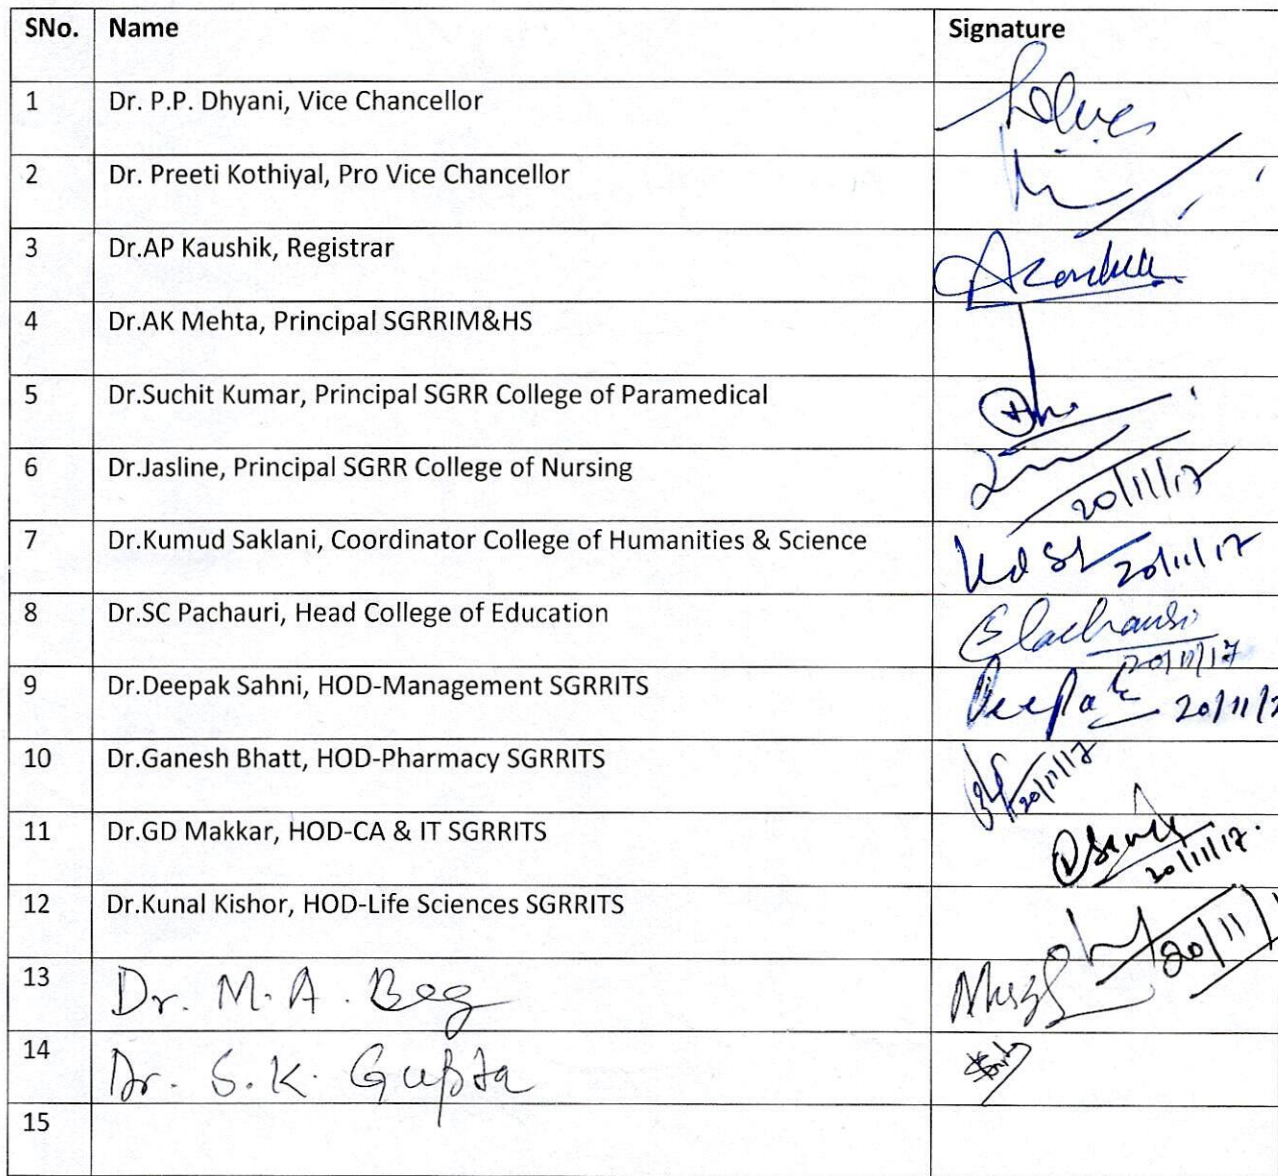 SNo. Name Signature
1 Dr. P.P. Dhyani, Vice Chancellor
2 Dr. Preeti Kothiyal, Pro Vice Chancellor
3 Dr.AP Kaushik, Registrar
4 Dr.AK Mehta, Principal SGRRIM&HS
5 Dr.Suchit Kumar, Principal SGRR College of Paramedical
6 Dr.Jasline, Principal SGRR College of Nursing 20/11/17
7 Dr.Kumud Saklani, Coordinator College of Humanities & Science 20/11/17
8 Dr.SC Pachauri, Head College of Education 20/11/17
9 Dr.Deepak Sahni, HOD-Management SGRRITS Deepak 20/11/
10 Dr.Ganesh Bhatt, HOD-Pharmacy SGRRITS 20/11/17
11 Dr.GD Makkar, HOD-CA & IT SGRRITS 20/11/17.
12 Dr.Kunal Kishor, HOD-Life Sciences SGRRITS 20/11/
13 Dr. M. A. Beg
14 Dr. S.K. Gupta
15